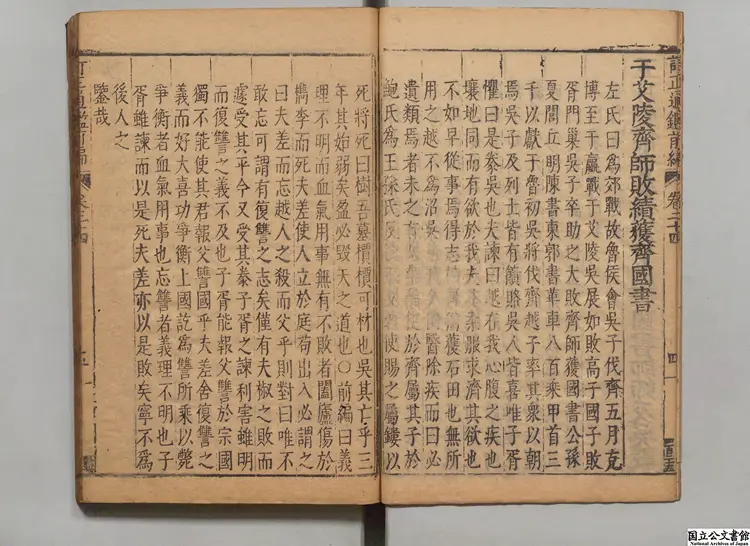 訂正通鑑前編 卷二十四
于艾陵齊師敗績獲齊國書
左氏曰為郊戰故魯侯會吳子伐齊五月克
博至于嬴戰于艾陵吳展如敗高子國子敗
胥門巢吳子卒助之大敗齊師獲國書公孫
夏閭丘明陳書東郭書革車八百乘甲首三
千以獻于魯初吳將伐齊越子率其衆以朝
焉吳子及列士皆有饋賂吳人皆喜唯子胥
懼曰是豢吳也夫諫曰越在我心腹之疾也
壤地同而有欲於我夫其柔服求濟其欲也
不如早從事焉得志於齊猶獲石田也無所
用之越不為沼吳其泯矣使醫除疾而曰必
遺類焉者未之有也弗聽使於齊屬其子於
鮑氏為王孫氏反役王聞之使賜之屬鏤以
死將死曰樹吾墓檟檟可材也吳其亡乎三
年其始弱矣盈必毀天之道也○前編曰義
理不明而血氣用事無有不敗者闔廬傷於
檇李而死夫差使人立於庭苟出入必謂之
曰夫差而忘越人之殺而父乎則對曰唯不
敢忘可謂有復讐之志矣僅有夫椒之敗而
遽受其平今又受其豢子胥之諫利害雖明
而復讐之義不及也子胥能報父讐於宗國
獨不能使其君報父讐國乎夫差舍復讐之
義而好大喜功爭衡上國訖為讐所乘以斃
爭衡者血氣用事也忘讐者義理不明也子
胥雖諫而以是死夫差亦以是敗矣寧不為
後人之
鑒哉
国立公文書館
National Archives of Japan